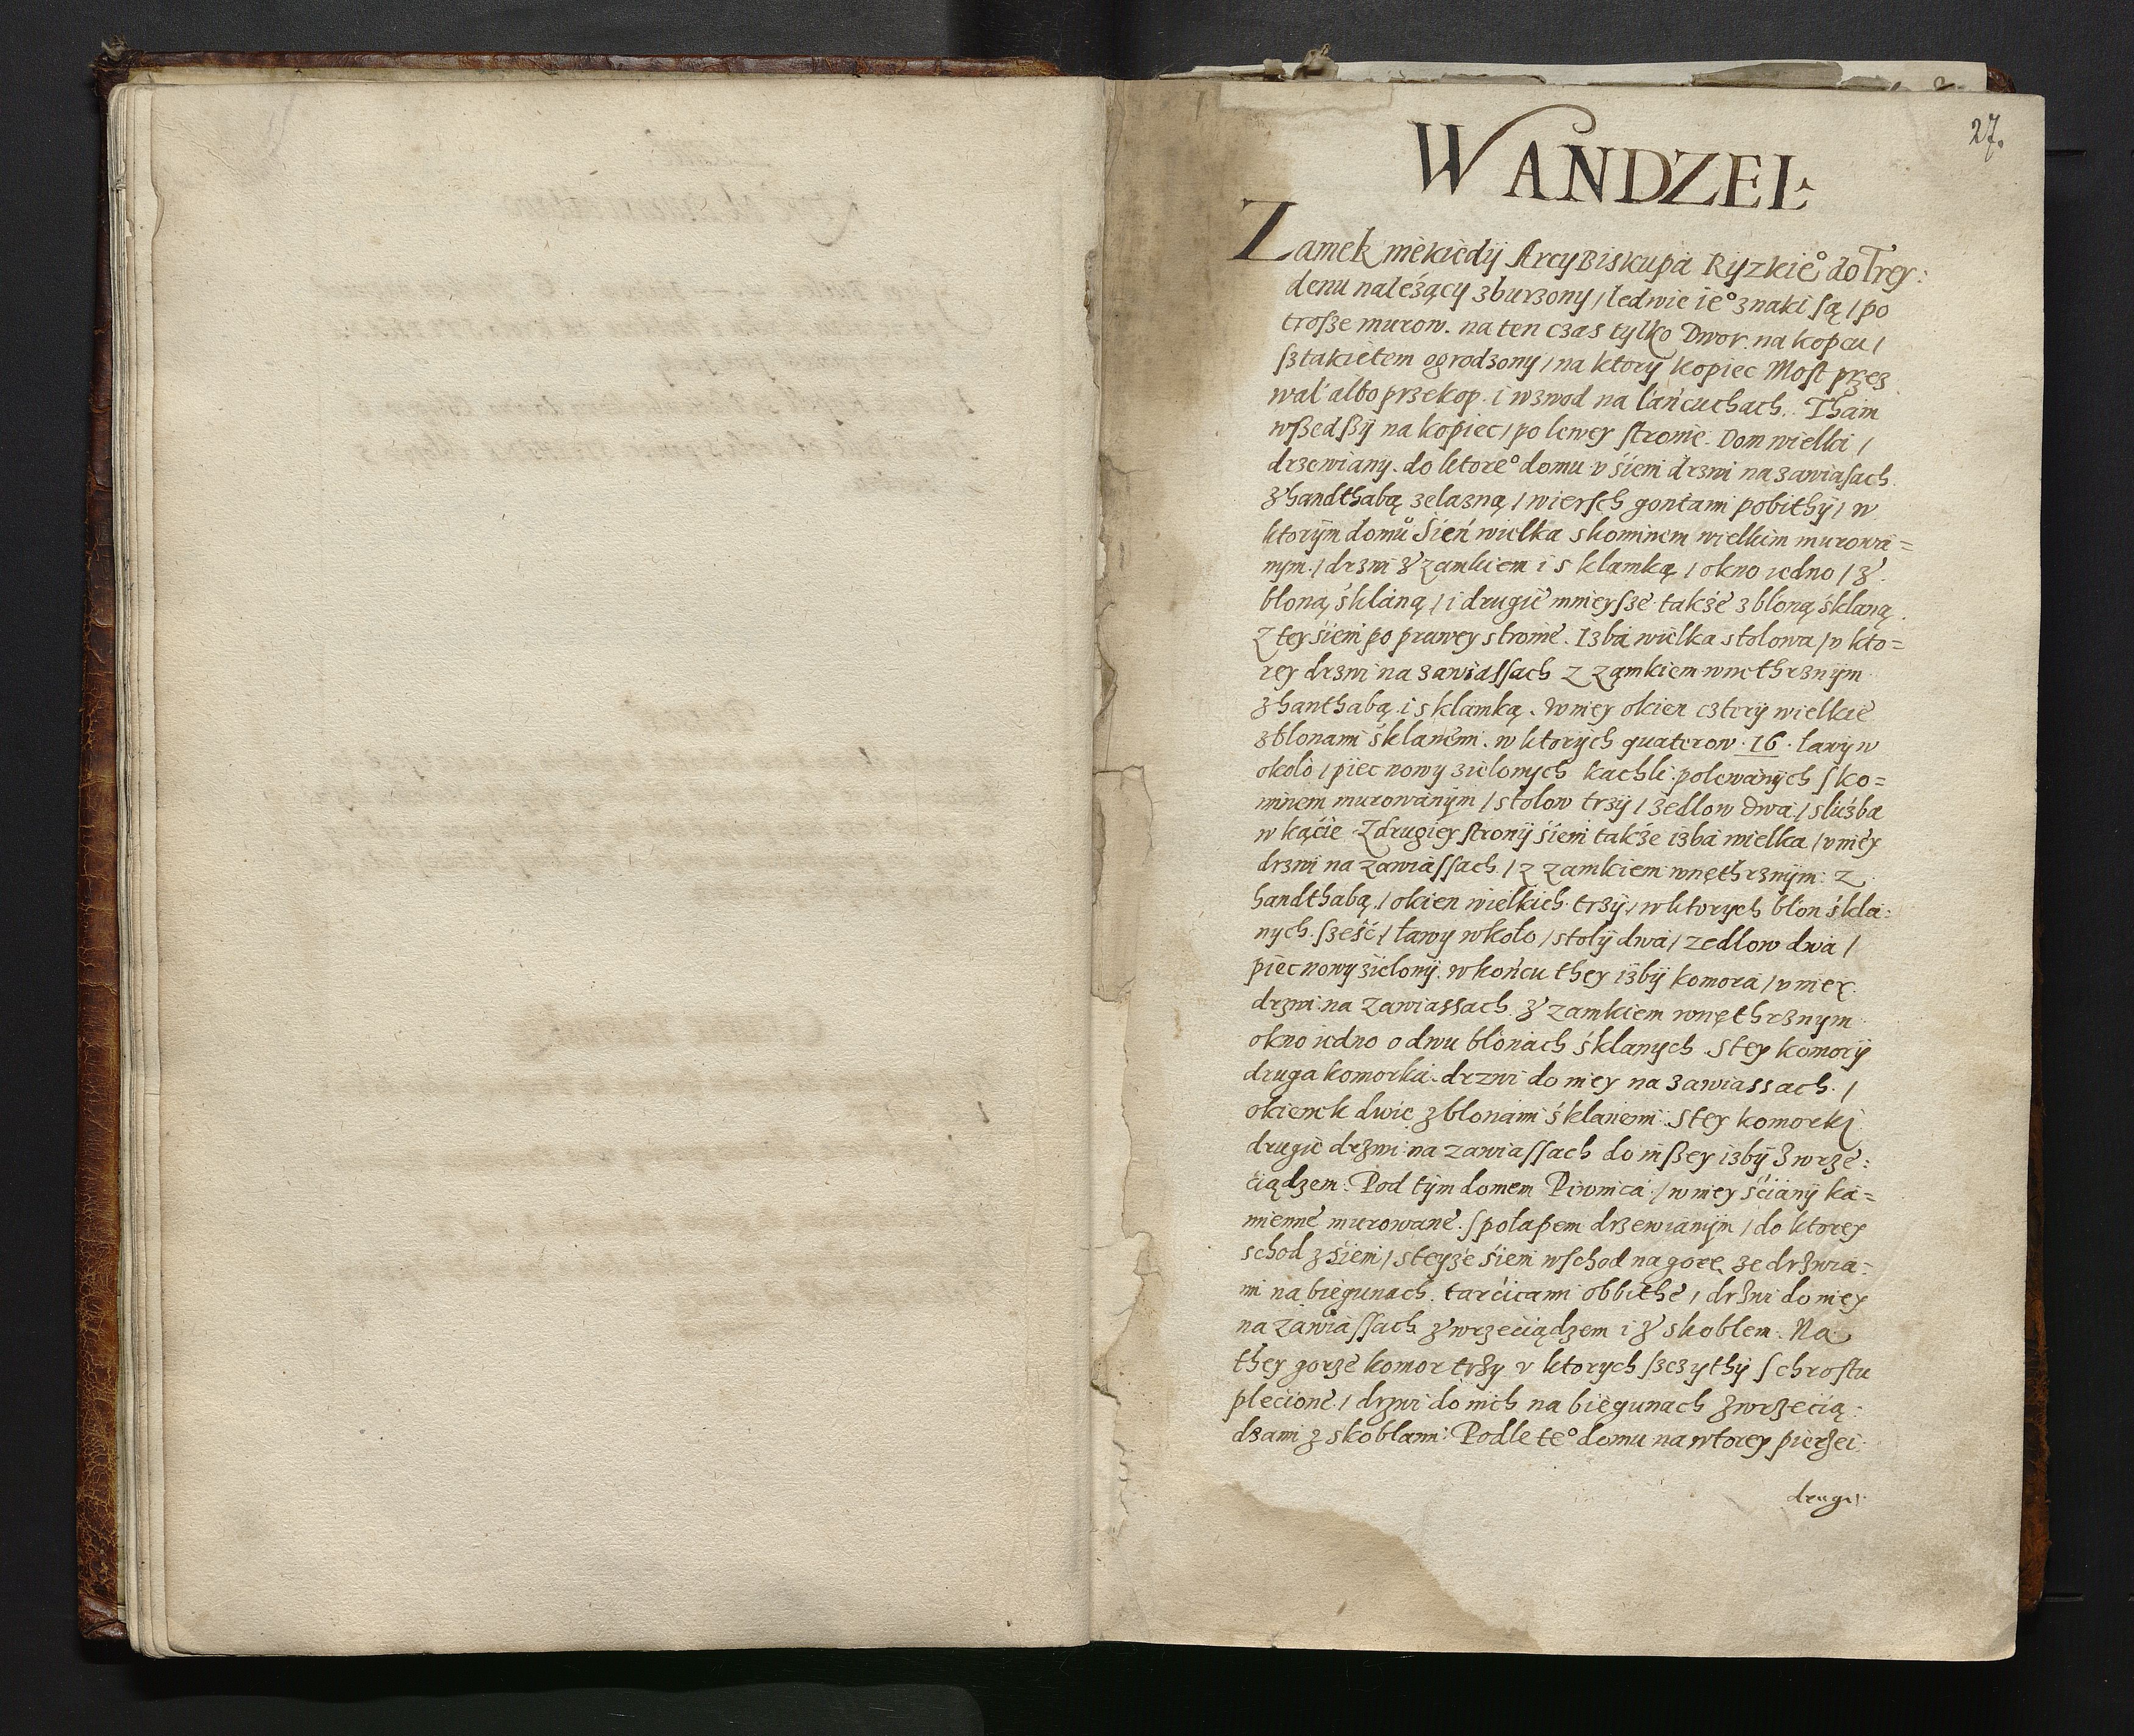 27.
WANDZEŁ
Zamek niekiedÿ Arcy Biskupa Ryzkie° do Trey:
denu należący zburzony / ledwie ie° znaki są / po
trosze murow. na ten czas tylko Dwor. na kopcu /
sztakietem ogrodzony / na ktorÿ kopiec Most przez
wał albo przekop. i wzwod na łańcuchach. Tham
wszedszÿ na kopiec / po lewey stronie. Dom wielki /
drzewianÿ. do ktore° domu v śieni drzwi na zawiasach
z handthabą zelazną / wiersch gontami pobithÿ / w
ktorÿm domů Sień wielka s kominem wielkim murowa=
nym. / drzwi z zamkiem i s klamką / okno iedno / z
błoną śklaną / i drugie mnieysze także z błoną śklaną.
Z tey śieni po prawey stronie. Izba wielka stolowa / v kto=
rey drzwi na zawiassach z zamkiem wnethrznÿm
z hanthabą. i s klamką. W niey okien czterÿ wielkie
z błonami śklanemi. w ktorÿch quaterow. 16. ławÿ w
około / piec nowy zielonych kachli polewanÿch s ko=
minem murowanÿm / stolow trzÿ / zedlow dwa / służba
w kąćie. Z drugiey stronÿ śieni także izba wielka / v niey
drzwi na zawiassach. / z zamkiem wnęthrznÿm. z
handthabą. / okien wielkich trzÿ / w ktorych błon śkla:
nych. sześć. / ławy wkoło / stolÿ dwa / zedlow dwa /
piec nowy zielonÿ. w końcu they izbÿ komora / v niey.
drzwi na zawiassach z zamkiem wnęthrznym
okno iedno o dwu błonach śklanych. S tey komorÿ
druga komorka. drzwi do niey na zawiassach. /
okienek dwie z błonami śklanemi. S tey komorki
drugie drzwi na zawiassach do inszey izbÿ z wrze:
ciądzem. Pod tÿm domem Piwnica. / w niey śćianÿ ka=
mienne murowane. s połapem drzewianÿm / do ktorey
schod z śieni / s teyże śieni wschod na gorę ze drzwia=
mi na biegunach. tarcicami obbithe / drzwi do niey
na zawiassach z wrzeciądzem i z skoblem. Na
they gorze komor trzy v ktorych szczythÿ s chrostu
plecione. / drzwi do nich na biegunach z wrzecią:
dzami z skoblami. Podle te° domu na wtorey pierzei
drugi